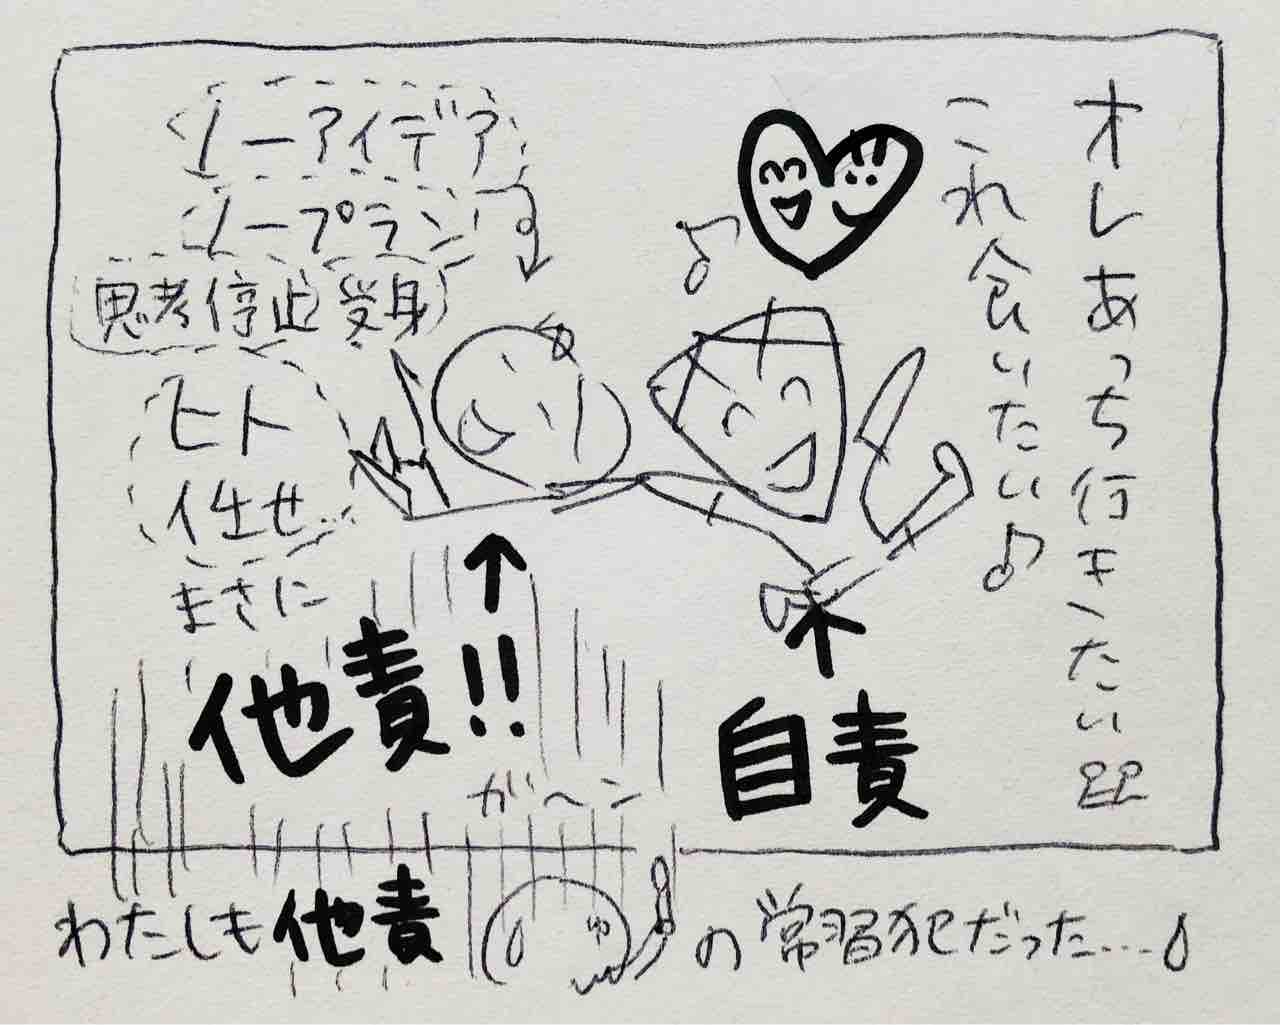 オレあっち行きたい
これ食いたい♪
ノーアイデア
ノープラン
思考停止 受身
ヒト
任せ…
まさに
他責!!
自責
がーン
わたしも他責の常習犯だった…